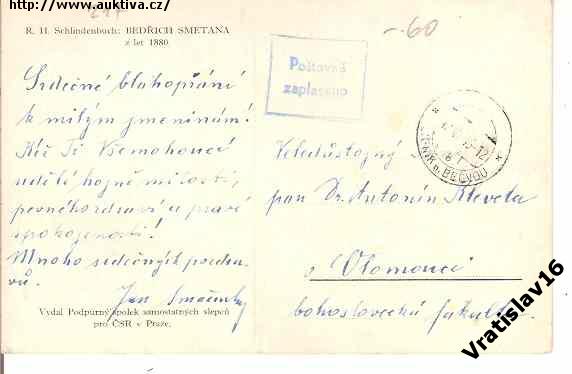 (www.auktiva.cz)
R. H. Schlindenbuch: BEDŘICH SMETANA
z let 1880
-.60
Poštovné
zaplaceno
Srdečné blahopřání
k milým jmeninám!
Kéž Ti Všemohoucí
udělí hojně milostí,
pevného zdraví a pravé
spokojenosti!
Mnoho srdečných pozdra-
vů.
Jan
Vydal Podpůrný spolek samostatných slepců
pro ČSR v Praze.
BEČVOU
Veledůstojný
pan Dr. Antonín Kleveta
Olomouci
bohoslovecká fakulta
Vratislav16